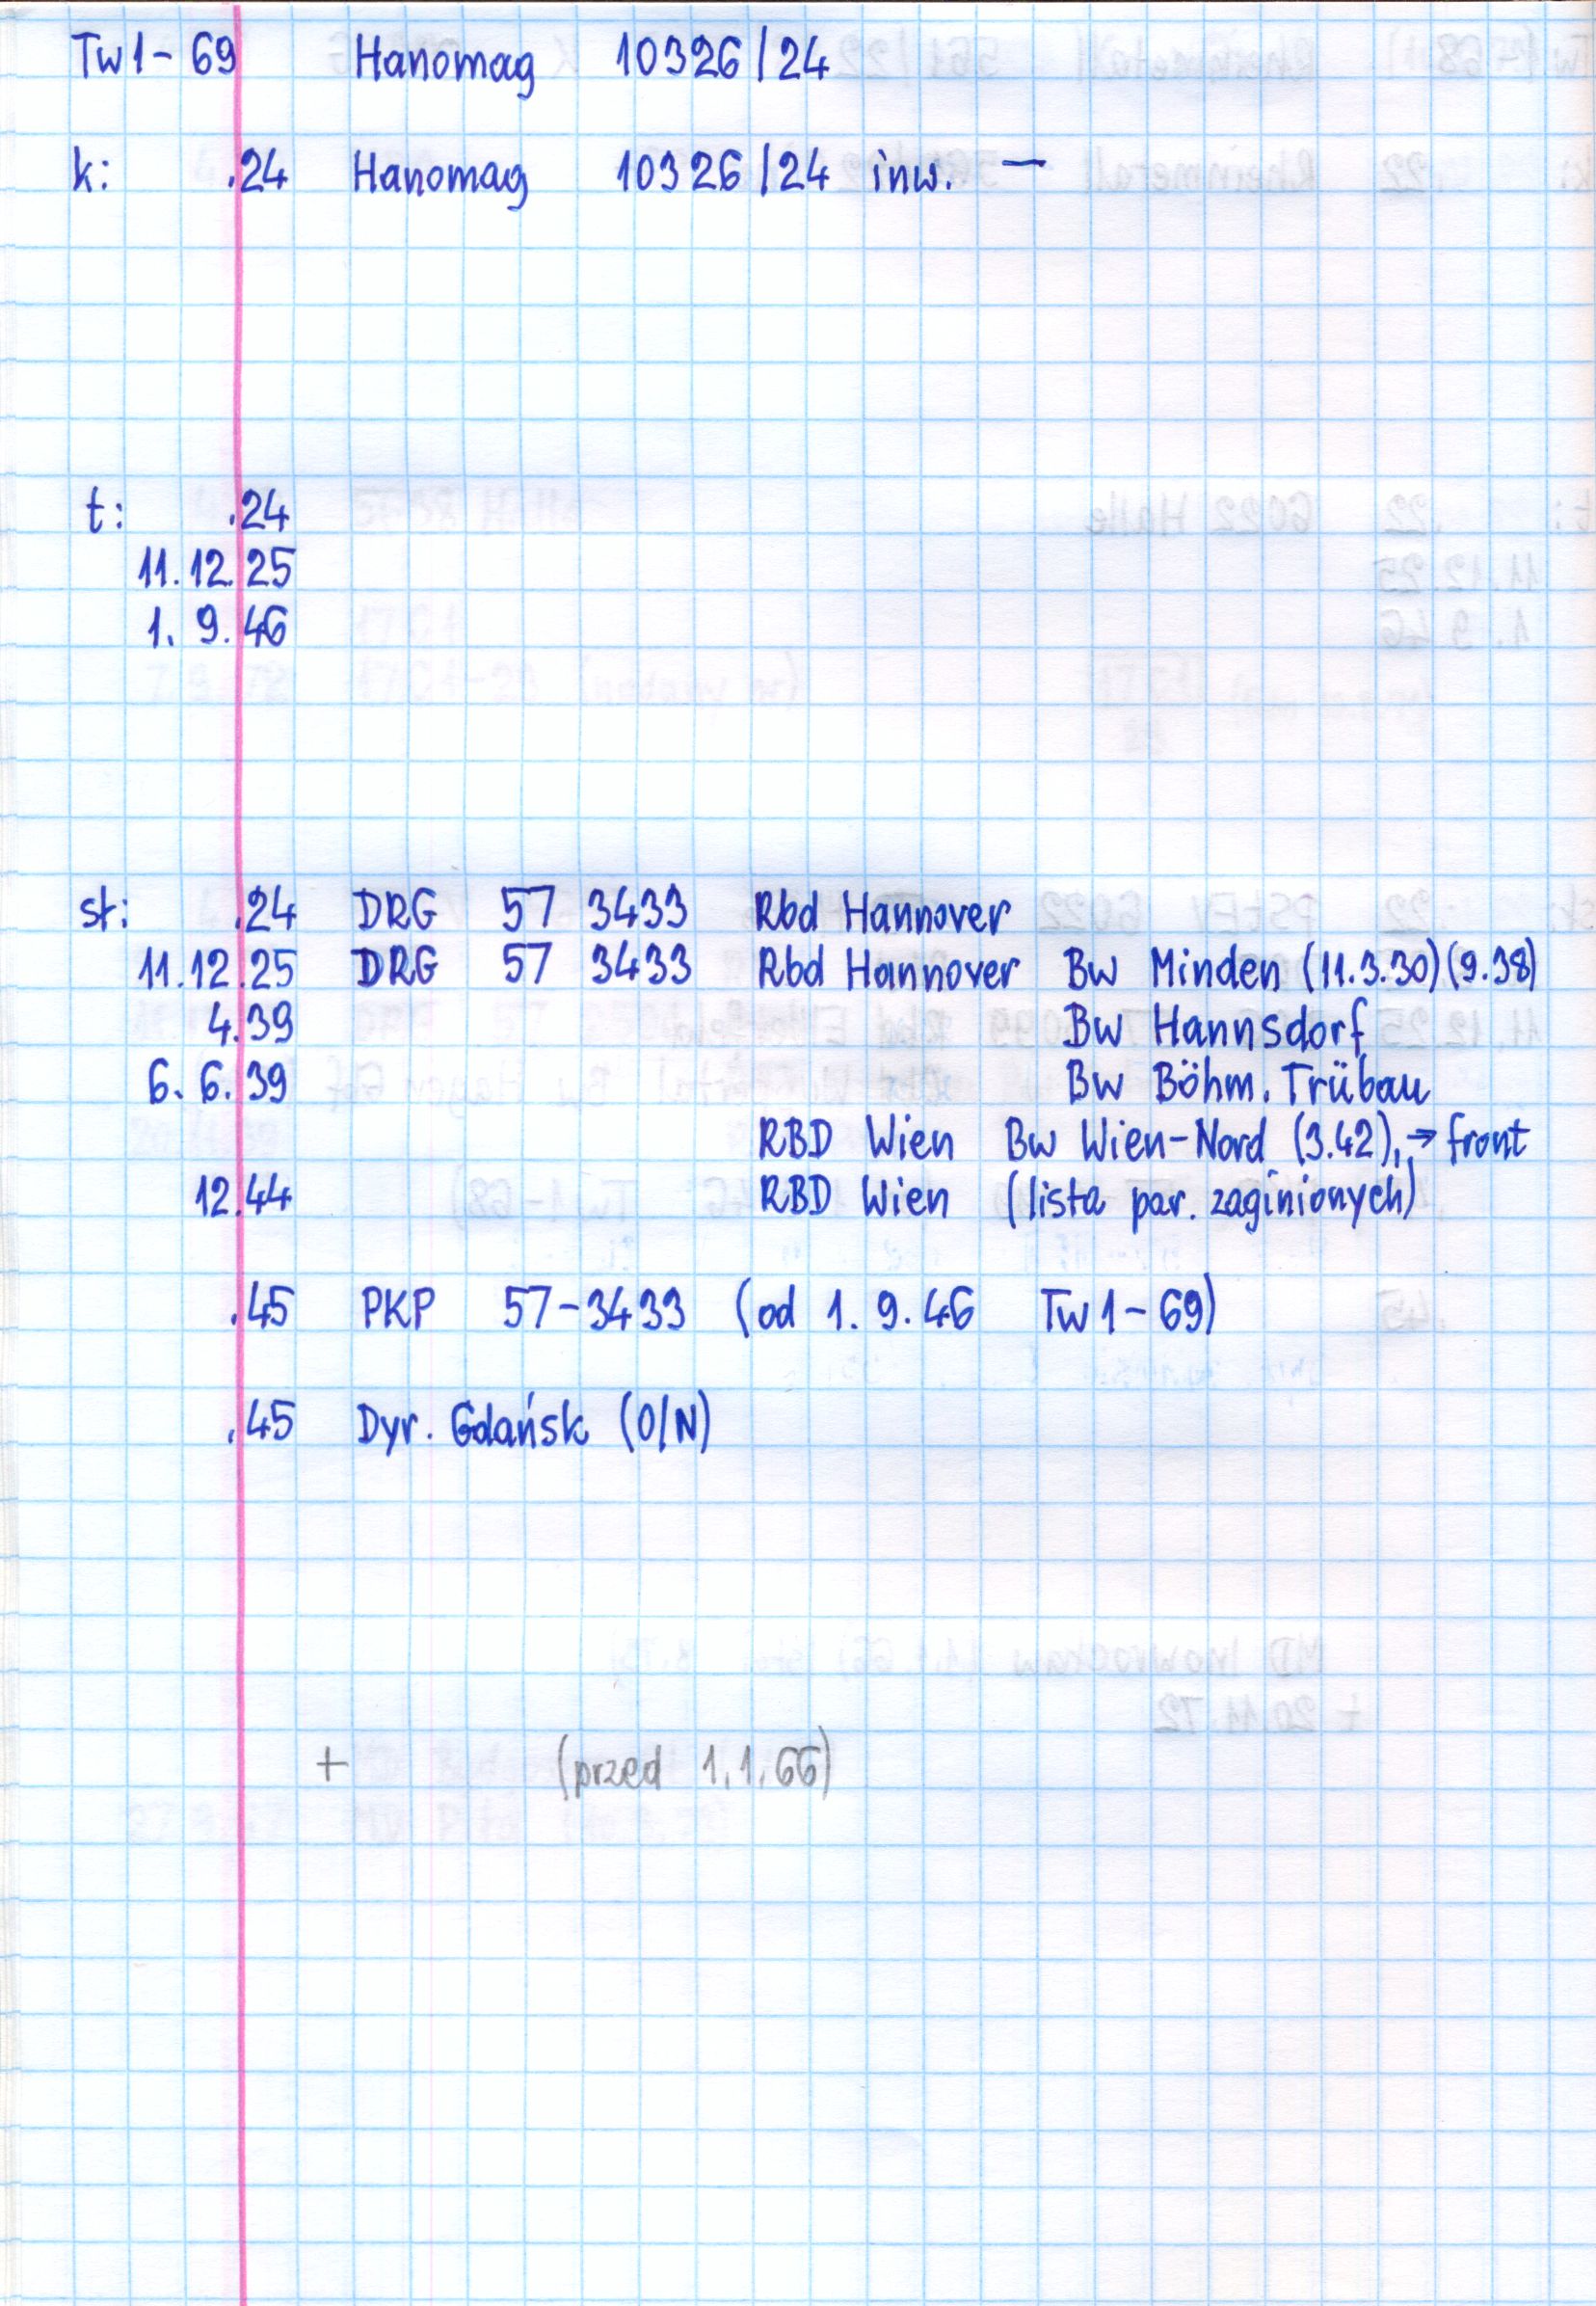 Tw1-69 Hanomag 10326/24
k: .24 Hanomag 10326/24 inw. —
t: .24
11.12.25
1. 9. 46
st: .24 DRG 57 3433 Rbd Hannover
11.12.25 DRG 57 3433 Rbd Hannover Bw Minden (11.3.30)(9.38)
4.39 Bw Hannsdorf
6. 6. 39 Bw Böhm. Trübau
RBD Wien Bw Wien-Nord (3.42), → front
12.44 RBD Wien (lista par. zaginionych)
.45 PKP 57-3433 (od 1. 9. 46 Tw1-69)
.45 Dyr. Gdańsk (O/N)
+ (przed 1.1.66)